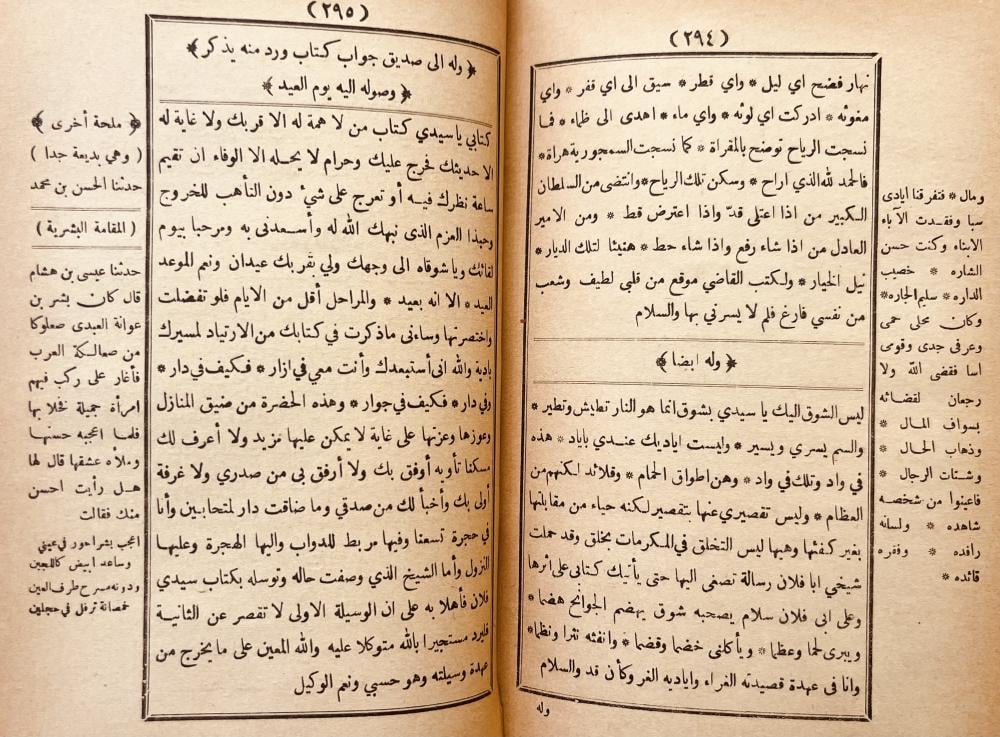 (٢٩٤)
نهار فضح اي ليل * واي قطر * سيق الى اي قفر * واي
مغوثه * ادركت اي لوثه * واي ماء * اهدى الى ظماء * فما
نسجت الرياح توضح بالمقراة * كما نسجت السمجورية هراة *
فالحمد لله الذي اراح * وسكن تلك الرياح * وانتضى من السلطان
الكبير من اذا اعتلى قدّ واذا اعترض قط * ومن الامير
العادل من اذا شاء رفع واذا شاء حط * هنيئا لتلك الديار *
نيل الخيار * ولكتب القاضي موقع من قلبي لطيف وشعب
من نفسي فارغ فلم لا يسرني بها والسلام
﴿ وله ايضا ﴾
ليس الشوق اليك يا سيدي بشوق انما هو النار تطيش وتطير *
والسم يسري ويسير * وليست اياديك عندي باياد * هذه
في واد وتلك في واد * وهن اطواق الحمام * وقلائد لكنهم من
العظام * وليس تقصيري عنها بتقصير لكنه حياء من مقابلتها
بغير كفئها وهبها ليس التخلق في المكرمات بخلق وقد حملت
شيخي ابا فلان رسالة تصغى اليها حتى يأتيك كتابى على اثرها
وعلى ابى فلان سلام يصحبه شوق يهضم الجوانح هضما *
ويبرى لحما وعظما * ويأكلنى خضما وقضما * وانفثه نثرا ونظما *
وانا فى عهدة قصيدته الغراء واياديه الغر وكأن قد والسلام
وله
ومال * فتفرقنا ايادى
سبا وفقدت الآباء
الابناء وكنت حسن
الشاره * خصيب
الداره * سليم الجاره *
وكان محلى حمى
وعرفى جدى وقومى
اسا فقضى الله ولا
رجعان لقضائه
بسواف المال *
وذهاب الحال *
وشتات الرجال *
فاعينوا من شخصه
شاهده * ولسانه
رافده * وفقره
قائده *
(٢٩٥)
﴿ وله الى صديق جواب كتاب ورد منه يذكر ﴾
﴿ وصوله اليه يوم العيد ﴾
كتابي يا سيدي كتاب من لا همة له الا قربك ولا غاية له
الا حديثك فحرج عليك وحرام لا يحله الا الوفاء ان تقيم
ساعة نظرك فيه أو تعرج على شئ دون التأهب للخروج
وحبذا العزم الذى نبهك الله له وأسعدنى به ومرحبا بيوم
لقائك ويا شوقاه الى وجهك ولي بقربك عيدان ونعم الموعد
العيد * الا انه بعيد * والمراحل أقل من الايام فلو تفضلت
واختصرتها وساءنى ما ذكرت في كتابك من الارتياد لمسيرك
بادية والله انى أستبعدك وأنت معي في ازار * فكيف في دار *
وفي دار * فكيف في جوار * وهذه الحضرة من ضيق المنازل
وعوزها وعزتها على غاية لا يمكن عليها مزيد ولا أعرف لك
مسكنا تأويه أوفق بك ولا أرفق بى من صدري ولا غرفة
أولى بك وأخبأ لك من صدقي وما ضاقت دار لمتحابين وأنا
في حجرة تسعنا وفيها مربط للدواب واليها الهجرة وعليها
النزول وأما الشيخ الذي وصفت حاله وتوسله بكتاب سيدي
فلان فأهلا به على ان الوسيلة الاولى لا تقصر عن الثانية
فليرد مستجيرا بالله متوكلا عليه والله المعين على ما يخرج من
عهدة وسيلته وهو حسبي ونعم الوكيل
﴿ ملحة أخرى ﴾
( وهي بديعة جدا )
حدثنا الحسن بن محمد
( المقامة البشرية )
حدثنا عيسى بن هشام
قال كان بشر بن
عوانة العبدى صعلوكا
من صعاليكة العرب
فأغار على ركب فيهم
امرأة جميلة فخلا بها
فلما اعجبه حسنها
وملأه عشقها قال لها
هل رأيت احسن
منك فقالت
اعجب بشرا حور في عيني
وساعد ابيض كاللجين
ودونه مسرح طرف العين
خمصانة ترفل في حجلين